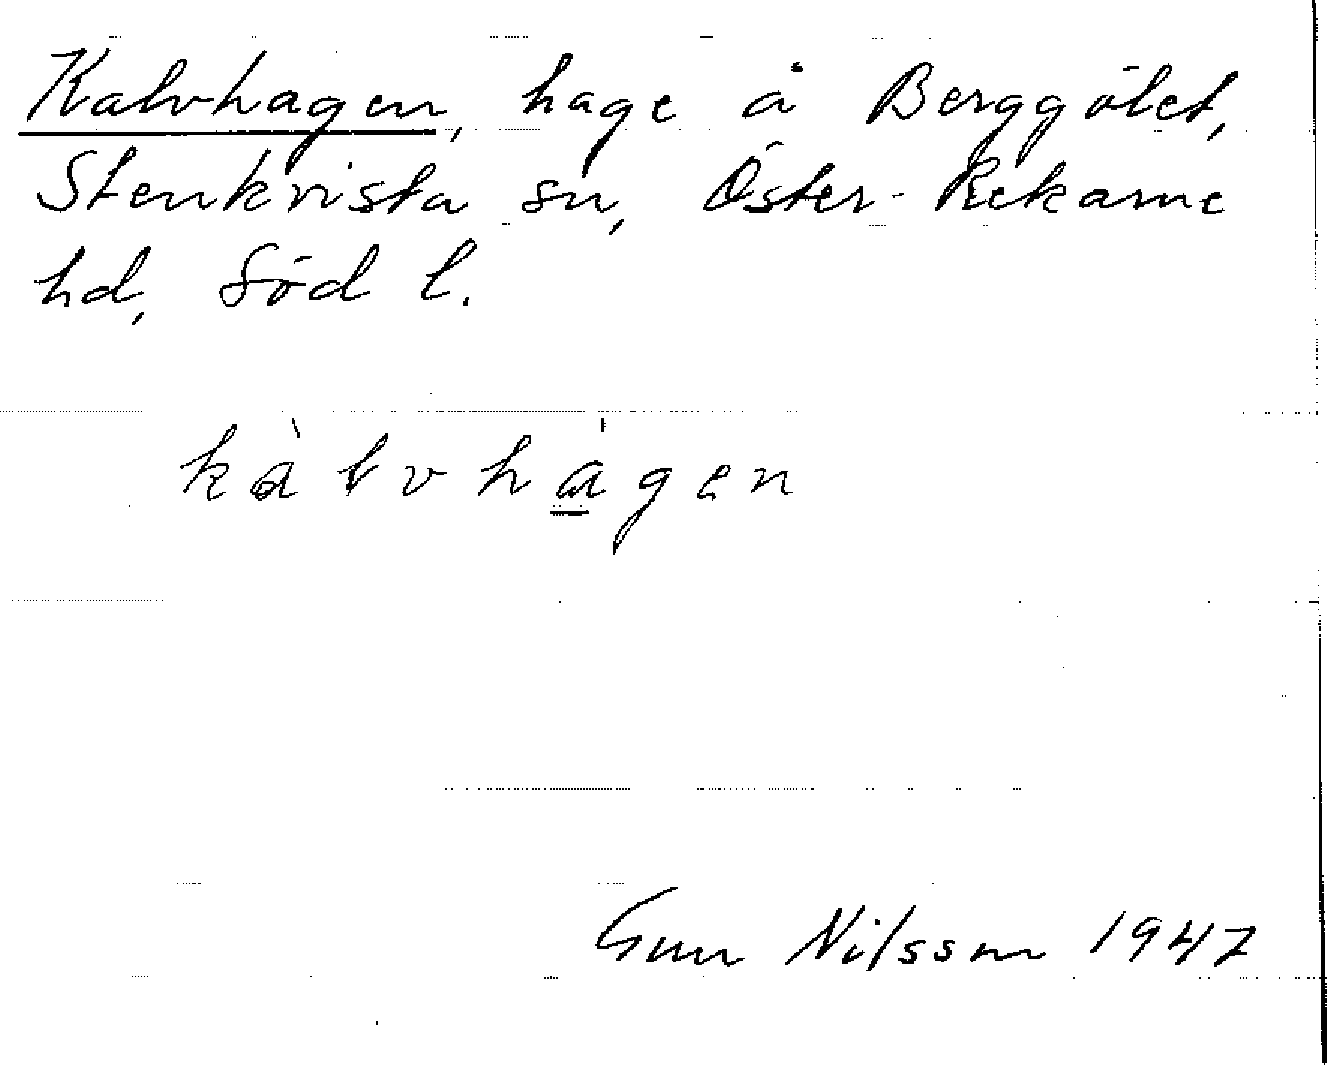 Kalvhagen, hage å Berggölet,
Stenkvista sn, Öster-Rekarne
hd, Söd l.
kàlvhágen
Gun Nilsson 1947